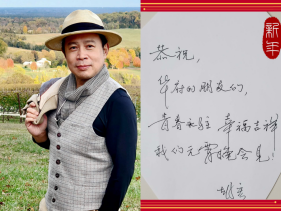 新年
恭祝,
华府的朋友们,
青春永驻 幸福吉祥
我们元宵晚会见!
胡